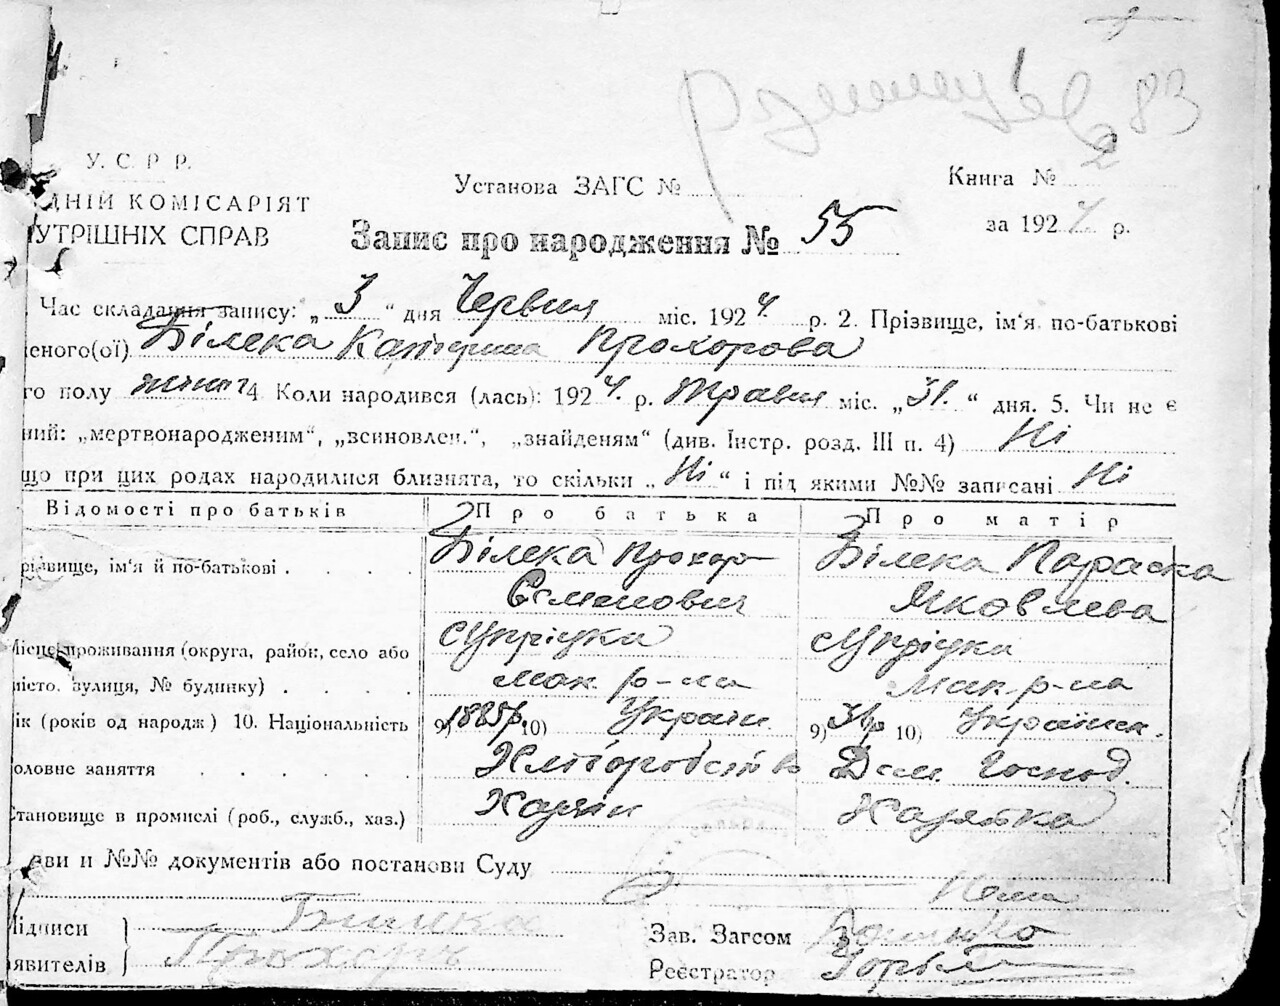 83
2
У. С. Р Р.
Установа ЗАГС №
Книга №
ДНІЙ КОМІСАРІЯТ
за 1924 р.
УТРІШНІХ СПРАВ
Запис про народження № 55
Час складання запису: „ 3 “ дня Червня міс. 1924 р. 2. Прізвище, ім‘я, по-батькові
еного(ої) Білека Катерина Прохорова
го полу жіноч 4 Коли народився (лась): 1924 р. Травня міс. „ 31 “ дня. 5. Чи не є
ний: „мертвонародженим“, „всиновлен.“, „знайденям“ (див. Інстр. розд. III п. 4) Ні
що при цих родах народилися близнята, то скільки „ Ні “ і під якими №№ записані Ні
Відомості про батьків Про батька Про матір
різвище, ім‘я й по-батькові Білека Прохор Білека Параска
Семенович Яковлева
Місце проживання (округа, район, село або
місто, вулиця, № будинку) Мак. р-на Мак. р-на
ік (років од народж) 10. Національність 9) 1885р. 10) Україн. 9) 31р 10) Українка.
оловне заняття Хліборобство Дом. Господ.
Становище в промислі (роб., служб., хаз.) Хазяїн Хазяйка
ви и №№ документів або постанови Суду
Нема
Підписи Билека
Зав. Загсом
аявителів Прохоръ
Реєстратор